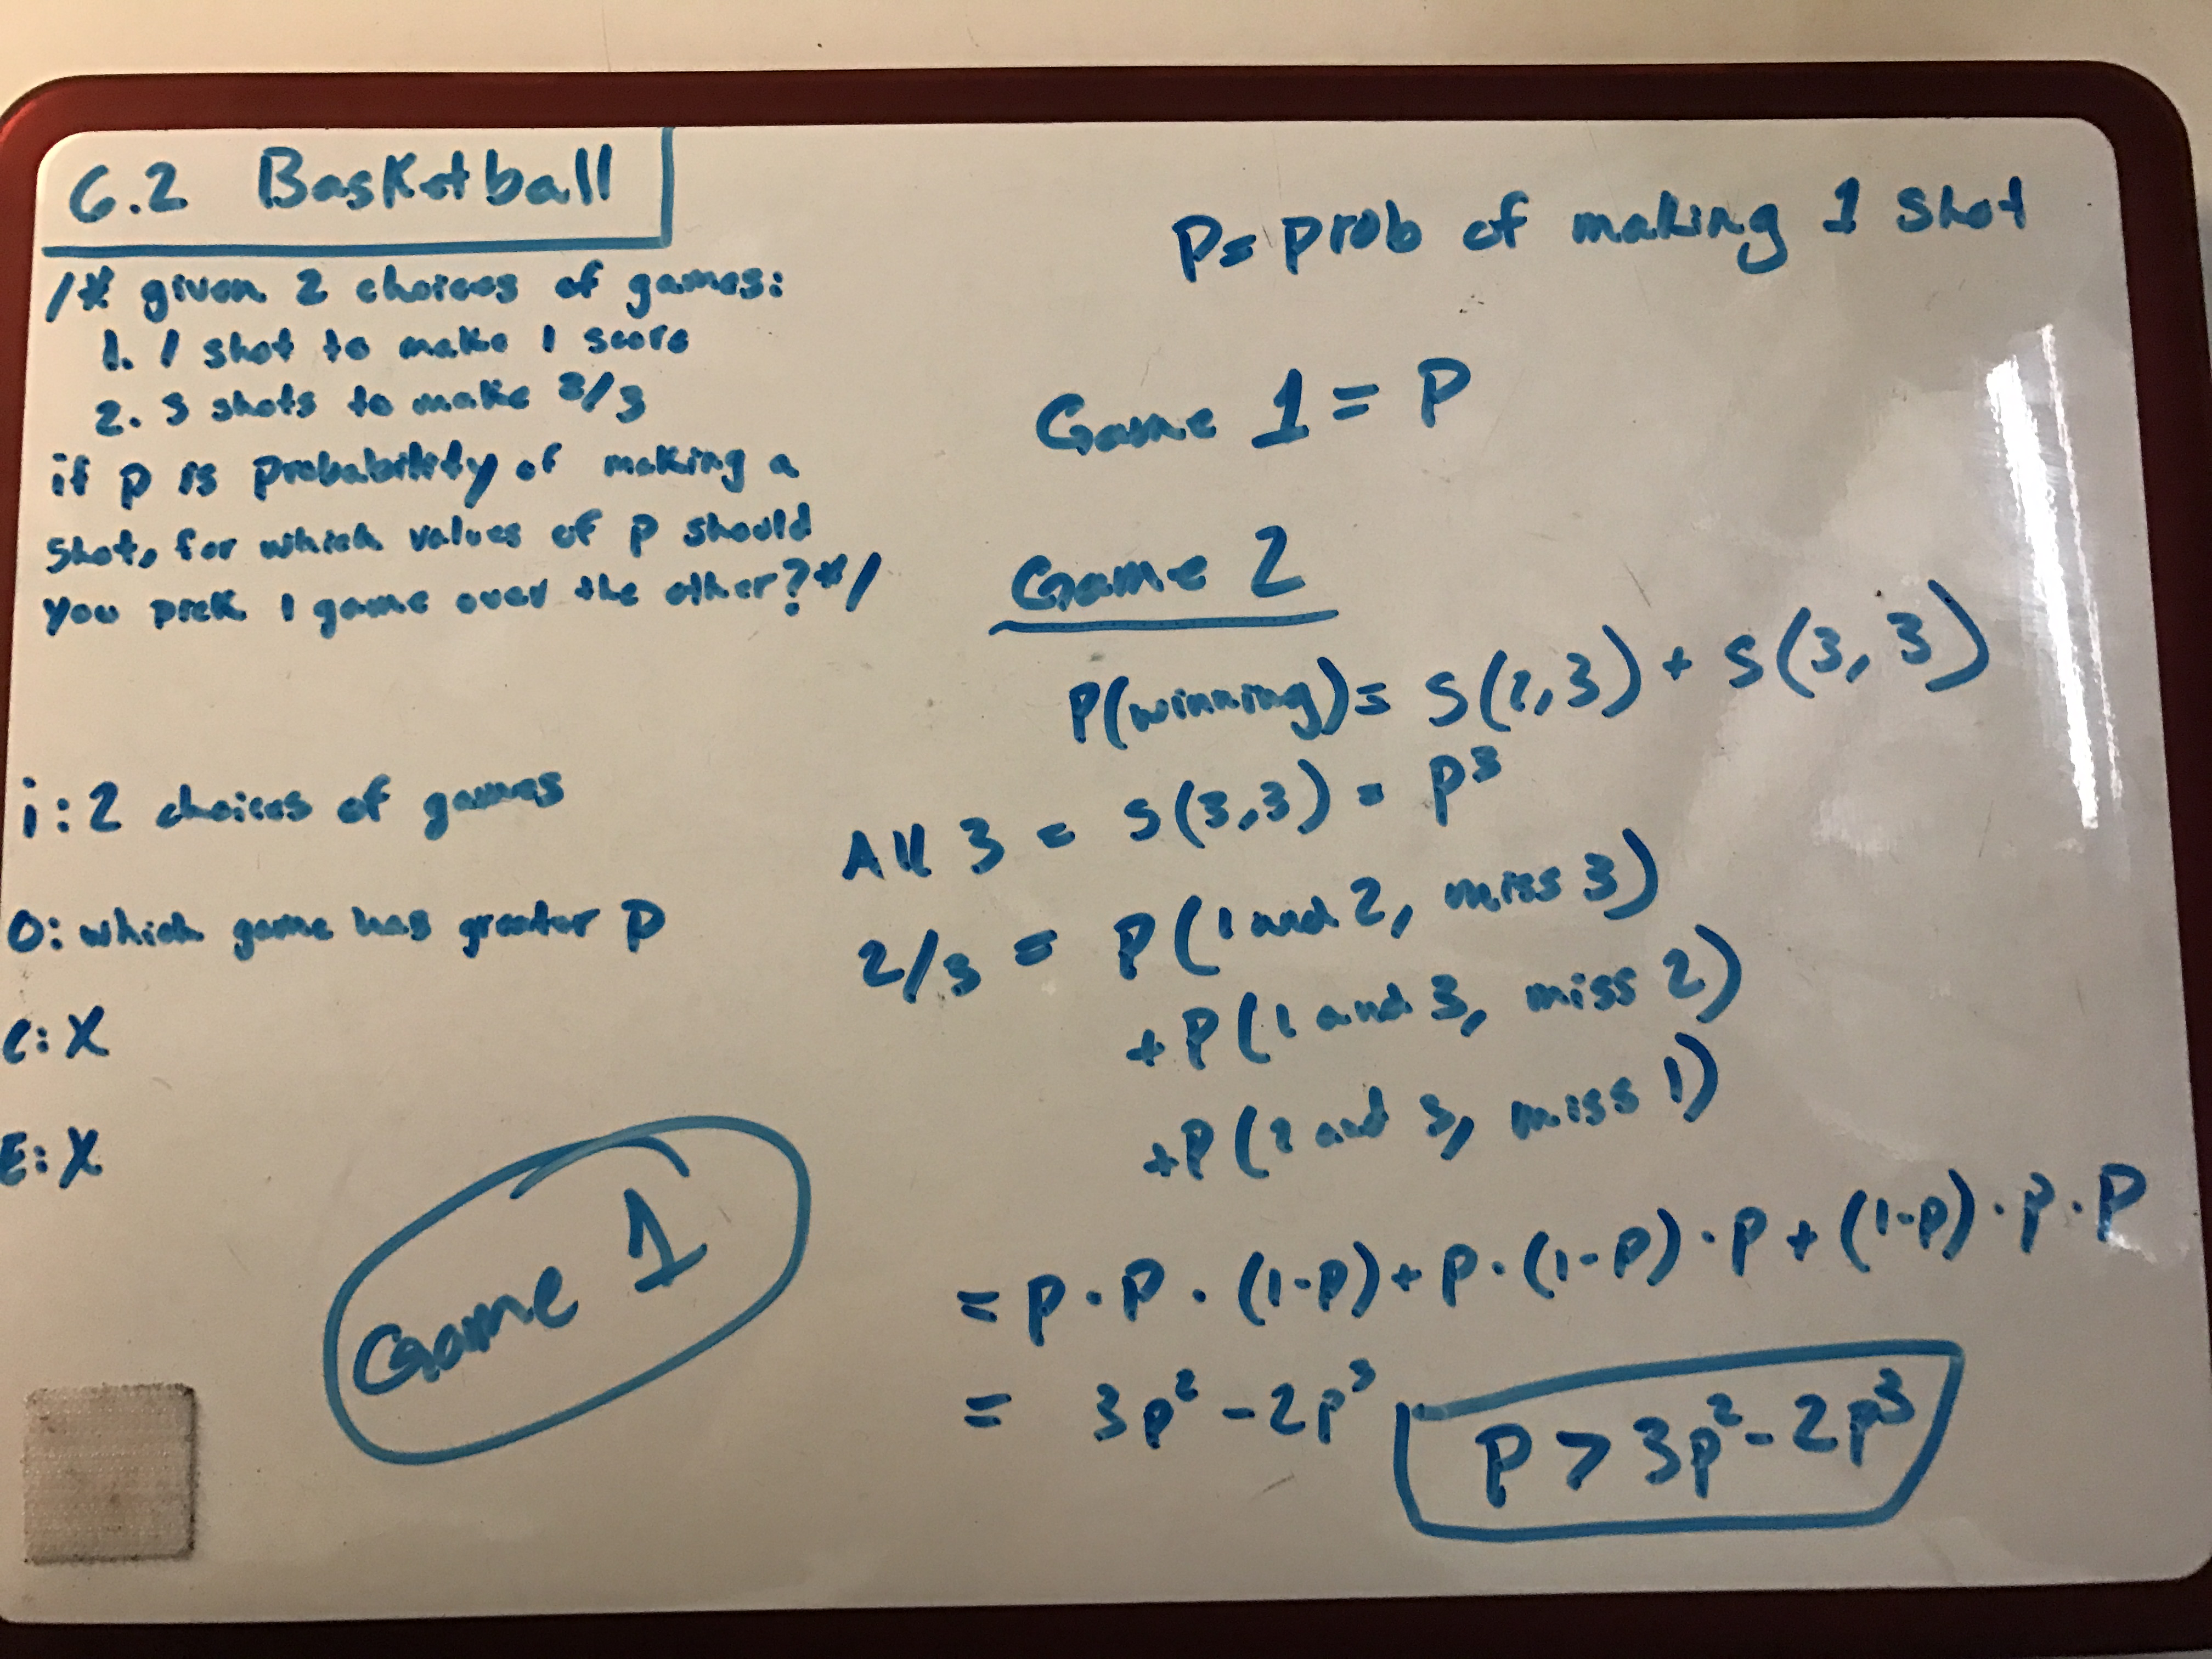 6.2 Basketball
/* given 2 choices of games:
1. 1 shot to make 1 score
2. 3 shots to make 2/3
if p is probability of making a
shot, for which values of p should
you pick 1 game over the other? */
i: 2 choices of games
O: which game has greater P
C: X
E: X
Game 1
P= prob of making 1 shot
Game 1 = P
Game 2
P(winning)= S(2,3) + S(3,3)
All 3 = S(3,3) = p³
2/3 = P(1 and 2, miss 3)
+ P(1 and 3, miss 2)
+ P(2 and 3, miss 1)
= P·P·(1-P)+P·(1-P)·P+(1-P)·P·P
= 3p²-2p³
P > 3p²-2p³